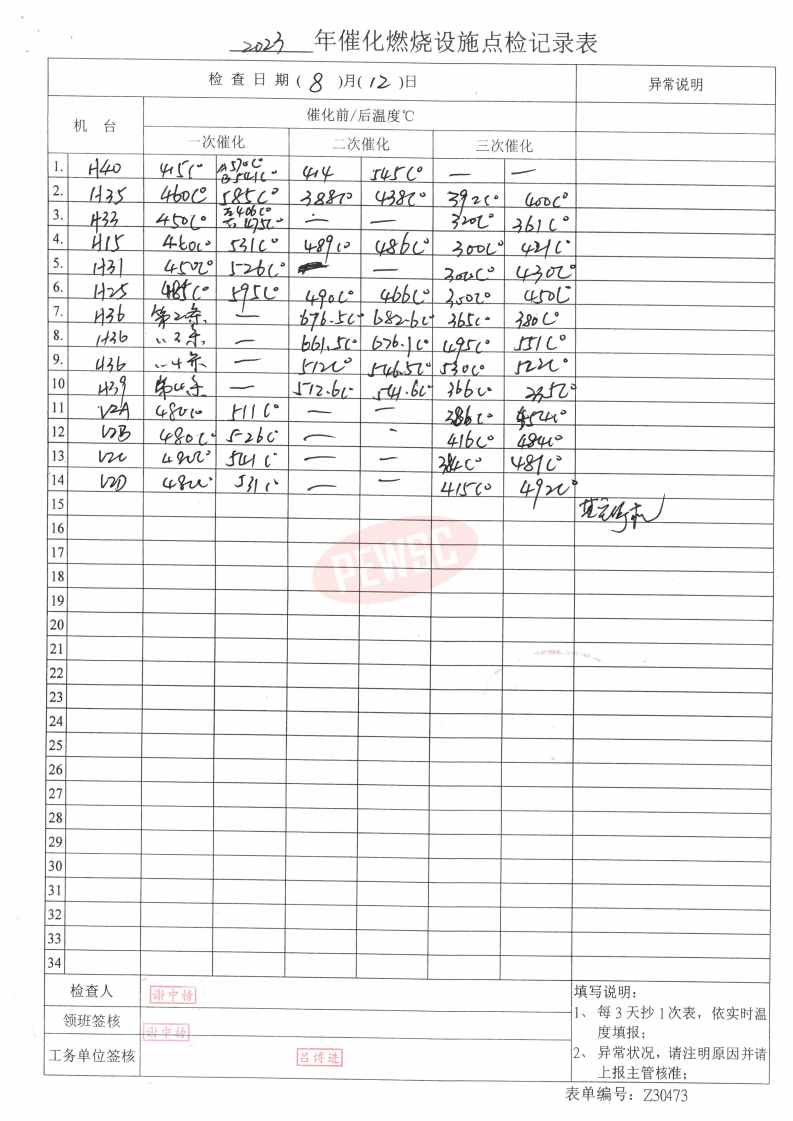 2023 年催化燃烧设施点检记录表
检 查 日 期 ( 8 )月( 12 )日 异常说明
机 台 催化前/后温度℃
一次催化 二次催化 三次催化
1. H40 415C° A570C° B541C° 414 545C° — —
2. H35 460C° 585C° 388C° 438C° 392C° 400C°
3. H33 450C° 左406C° 右475C° — — 320C° 361C°
4. H15 460C° 531C° 489C° 486C° 300C° 421C°
5. H31 450C° 526C° — 300C° 430C°
6. H25 485C° 595C° 490C° 466C° 300C° 450C°
7. H36 第2条 — 676.5C° 682.6C° 365C° 380C°
8. H36 〃 3条 — 661.5C° 676.1C° 495C° 551C°
9. H36 〃 4条 — 512C° 546.5C° 530C° 522C°
10 H39 第4条 — 512.6C° 541.6C° 366C° 235C°
11 V2A 480C° 511C° — — 386C° 454C°
12 V2B 480C° 526C° — - 416C° 484C°
13 V2C 480C° 541C° — — 384C° 481C°
14 V2D 480C° 531C° — — 415C° 492C°
15
16
17
18
19
20
21
22
23
24
25
26
27
28
29
30
31
32
33
34
PEWSC
检查人 谢中榜
领班签核 谢中榜
工务单位签核 吕博进
填写说明：
1、 每 3 天抄 1 次表，依实时温
度填报；
2、 异常状况，请注明原因并请
上报主管核准；
表单编号：Z30473